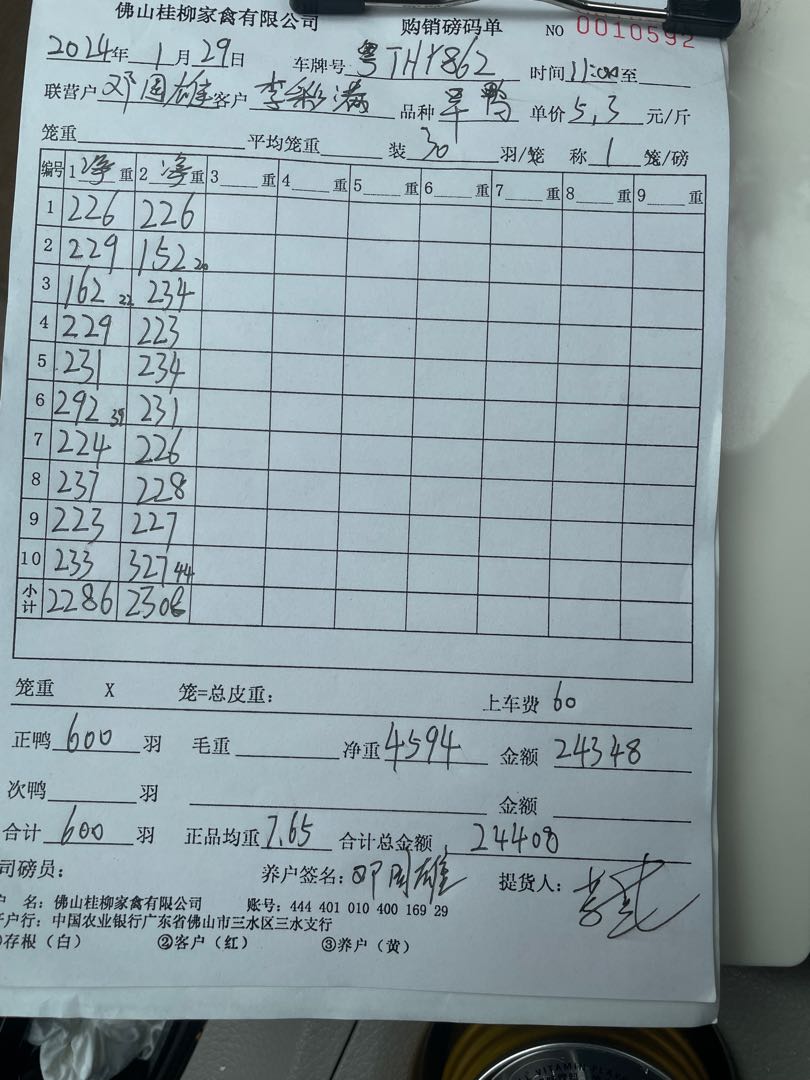 佛山桂柳家禽有限公司 购销磅码单 NO 0010592
2024年1月29日 车牌号 粤THY862 时间 11:00 至
联营户 邓国雄 客户 李彩满 品种 旱鸭 单价 5.3 元/斤
笼重 平均笼重 装 30 羽/笼 称 1 笼/磅
编号 1 净 重 2 净 重 3 重 4 重 5 重 6 重 7 重 8 重 9 重
1 226 226
2 229 152 20
3 162 22 234
4 229 223
5 231 234
6 292 39 231
7 224 226
8 237 228
9 223 227
10 233 327 44
小计 2286 2308
笼重 X 笼=总皮重: 上车费 60
正鸭 600 羽 毛重 净重 4594 金额 24348
次鸭 羽 金额
合计 600 羽 正品均重 7.65 合计总金额 24408
司磅员: 养户签名: 邓国雄 提货人:
户 名: 佛山桂柳家禽有限公司 账号: 444 401 010 400 169 29
开户行: 中国农业银行广东省佛山市三水区三水支行
①存根(白) ②客户(红) ③养户(黄)
VITAMIN